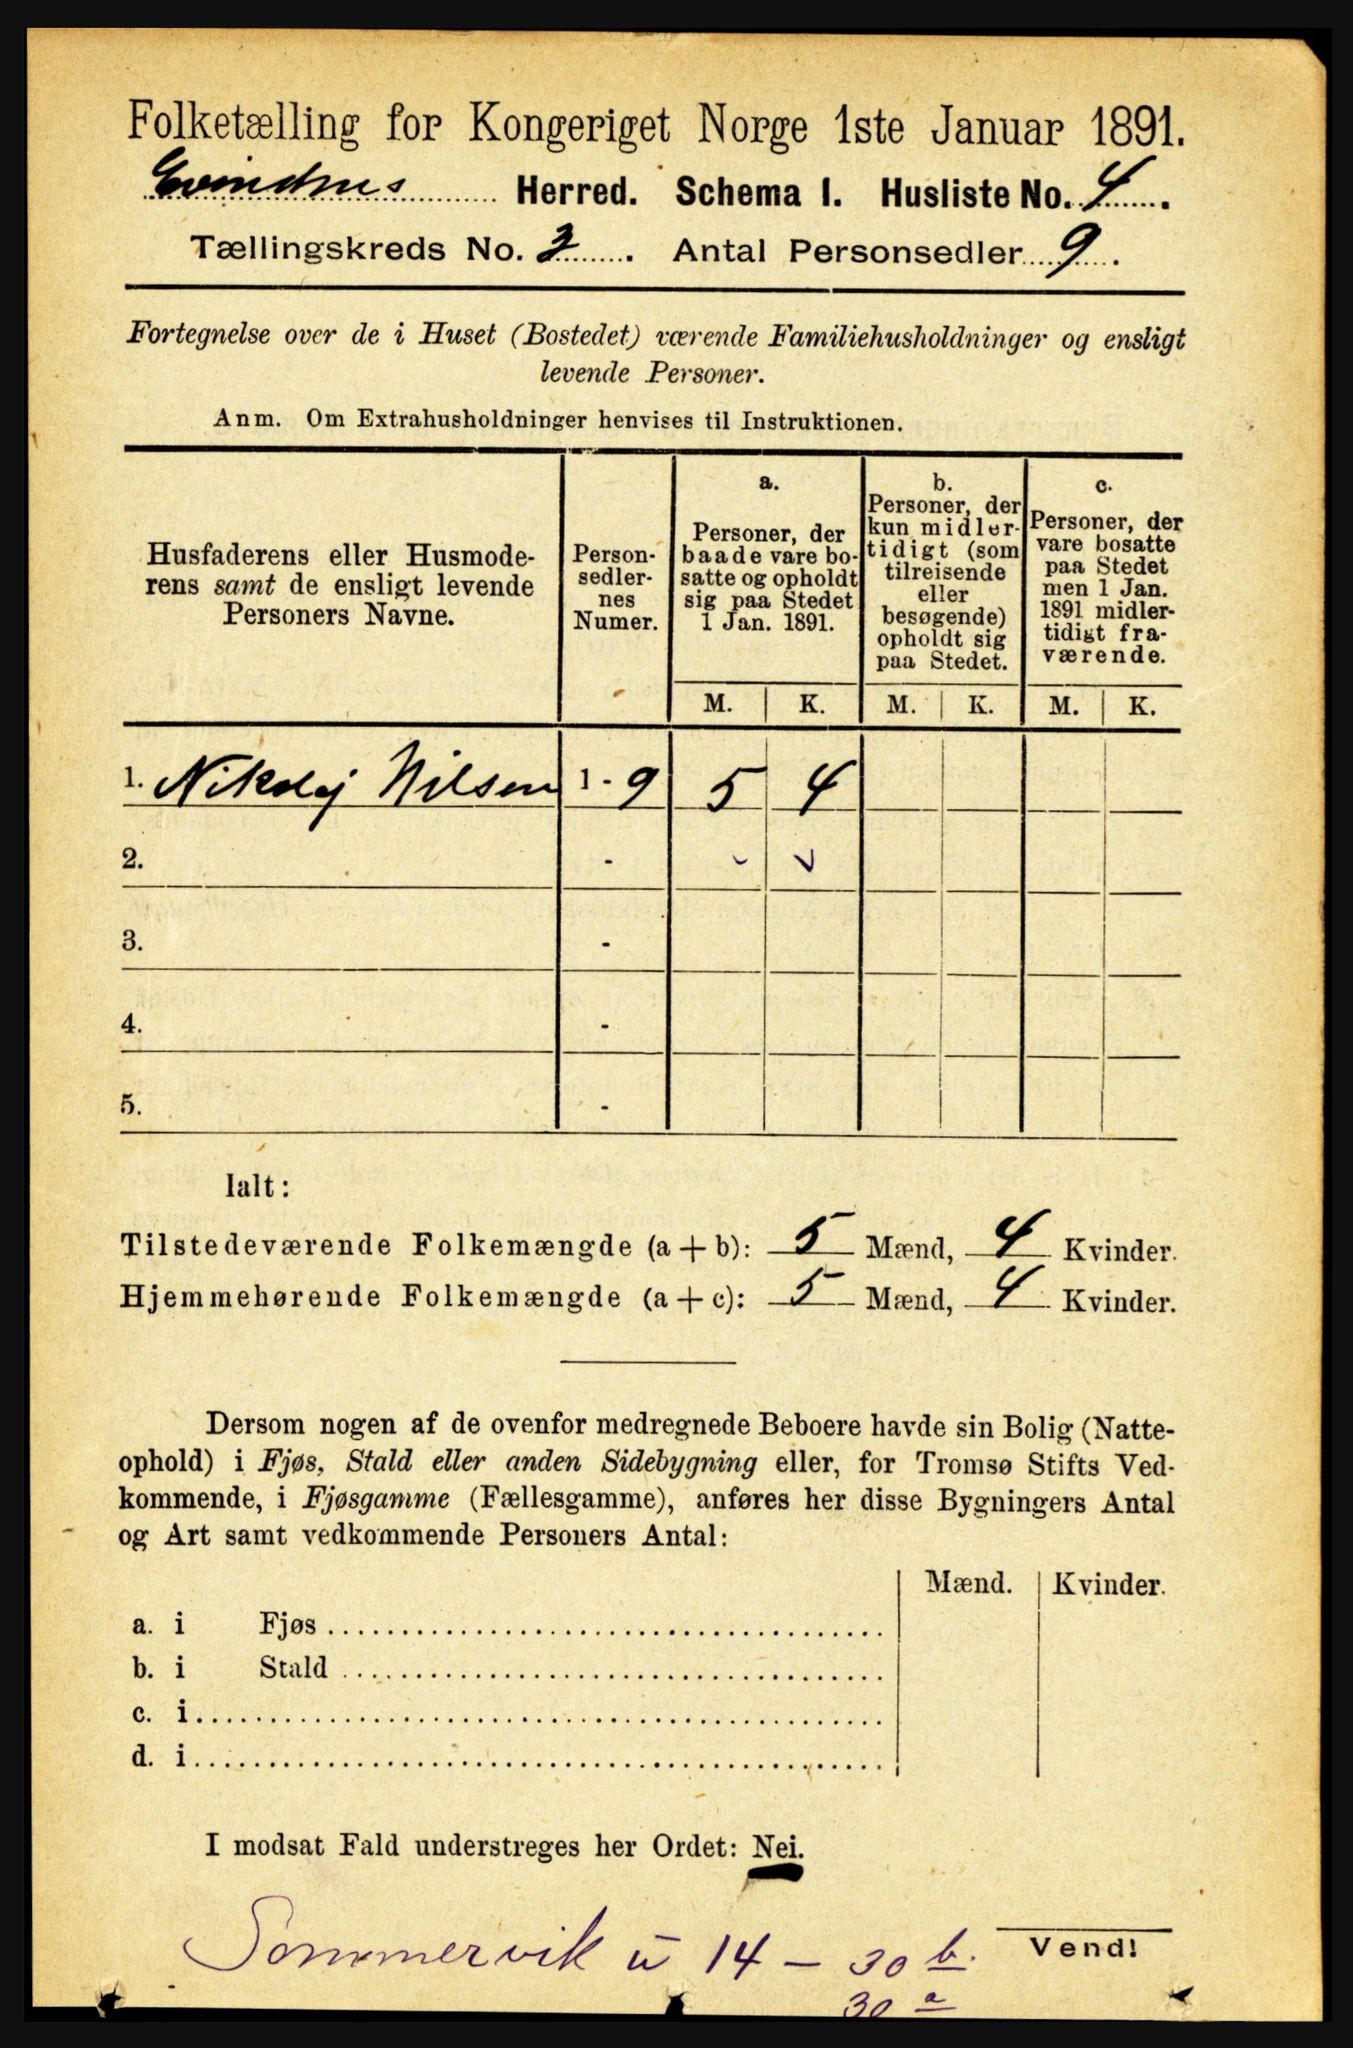 Folketælling for Kongeriget Norge 1ste Januar 1891.
Evindnes Herred. Schema I. Husliste No. 4.
Tællingskreds No. 3. Antal Personsedler 9.
Fortegnelse over de i Huset (Bostedet) værende Familiehusholdninger og ensligt
levende Personer.
Anm. Om Extrahusholdninger henvises til Instruktionen.
Husfaderens eller Husmode-
rens samt de ensligt levende
Personers Navne.
Person-
sedler-
nes
Numer.
a.
Personer, der
baade vare bo-
satte og opholdt
sig paa Stedet
1 Jan. 1891.
b.
Personer, der
kun midler-
tidigt (som
tilreisende
eller
besøgende)
opholdt sig
paa Stedet.
c.
Personer, der
vare bosatte
paa Stedet
men 1 Jan.
1891 midler-
tidigt fra-
værende.
M. K. M. K. M. K.
1. Nikolaj Nilsen 1 - 9 5 4
2. -
3. -
4. -
5. -
Ialt:
Tilstedeværende Folkemængde (a + b): 5 Mænd, 4 Kvinder.
Hjemmehørende Folkemængde (a + c): 5 Mænd, 4 Kvinder.
Dersom nogen af de ovenfor medregnede Beboere havde sin Bolig (Natte-
ophold) i Fjøs, Stald eller anden Sidebygning eller, for Tromsø Stifts Ved-
kommende, i Fjøsgamme (Fællesgamme), anføres her disse Bygningers Antal
og Art samt vedkommende Personers Antal:
Mænd. Kvinder.
a. i Fjøs
b. i Stald
c. i
d. i
I modsat Fald understreges her Ordet: Nei.
Sommervik u 14 - 30 b.
Vend!
30 a